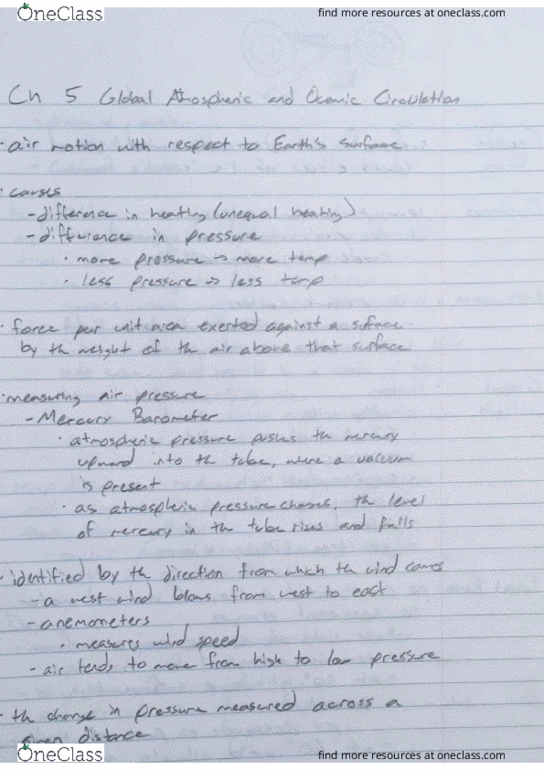 OneClass
find more resources at oneclass.com
Ch 5 Global Atmospheric and Oceanic Circulation
· air motion with respect to Earth's surface
· causes
- difference in heating (unequal heating)
- difference in pressure
· more pressure → more temp
· less pressure → less temp
· force per unit area exerted against a surface
by th weight of th air above that surface
· measuring air pressure
- Mercury Barometer
· atmospheric pressure pushes th mercury
upward into th tube, were a vacuum
is present
· as atmospheric pressure changes, th level
of mercury in th tube rises and falls
· identified by th direction from which th wind comes
- a west wind blows from west to east
- anemometers
· measures wind speed
- air tends to move from high to low pressure
· th change in pressure measured across a
given distance
OneClass
find more resources at oneclass.com